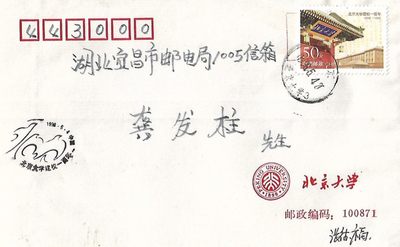 443000
北京大学建校一百年
50分
中国邮政
湖北宜昌市邮电局1005信箱
龚发柱
先生
1998.5.4
北京大学建校一百年
PEKING UNIVERSITY
1898
北京大学
邮政编码：100871